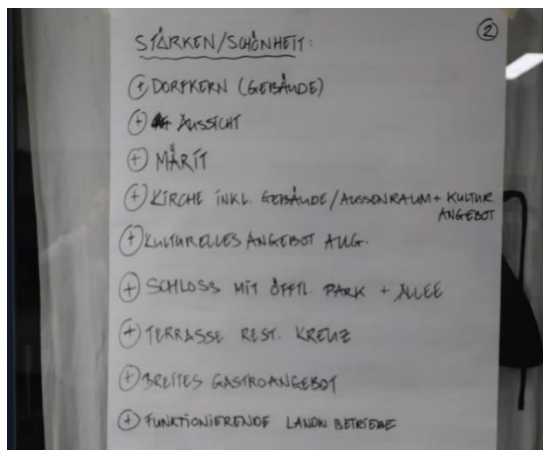 ②
STÄRKEN/SCHÖNHEIT:
⊕ DORFKERN (GEBÄUDE)
⊕ AUSSICHT
⊕ MÄRIT
⊕ KIRCHE INKL. GEBÄUDE/AUSSENRAUM + KULTUR
ANGEBOT
⊕ KULTURELLES ANGEBOT ALLG.
⊕ SCHLOSS MIT ÖFFTL. PARK + ALLEE
⊕ TERRASSE REST. KREUZ
⊕ BREITES GASTROANGEBOT
⊕ FUNKTIONIERENDE LANDW. BETRIEBE